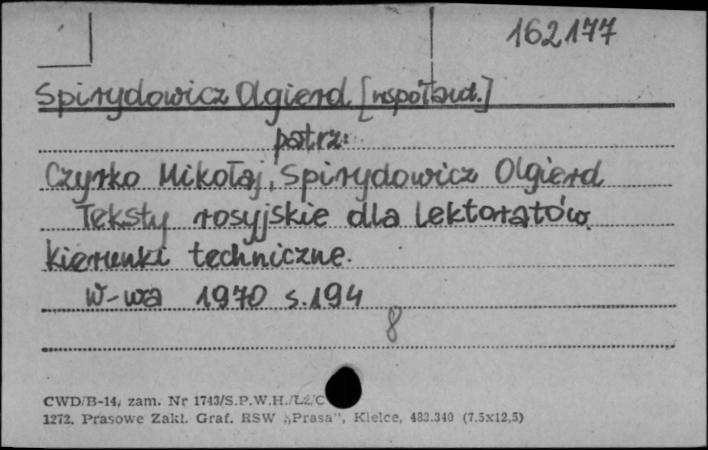 162177
Spirydowicz Olgierd [współaut.]
patrz:
Czyrko Mikołaj, Spirydowicz Olgierd
Teksty rosyjskie dla lektoratów.
kierunki techniczne.
W-wa 1970 s.194
8
CWD/B-14, zam. Nr 1743/S.P.W.H./Łź/C
1272. Prasowe Zakł. Graf. RSW „Prasa”, Kielce, 483.340 (7,5x12,5)